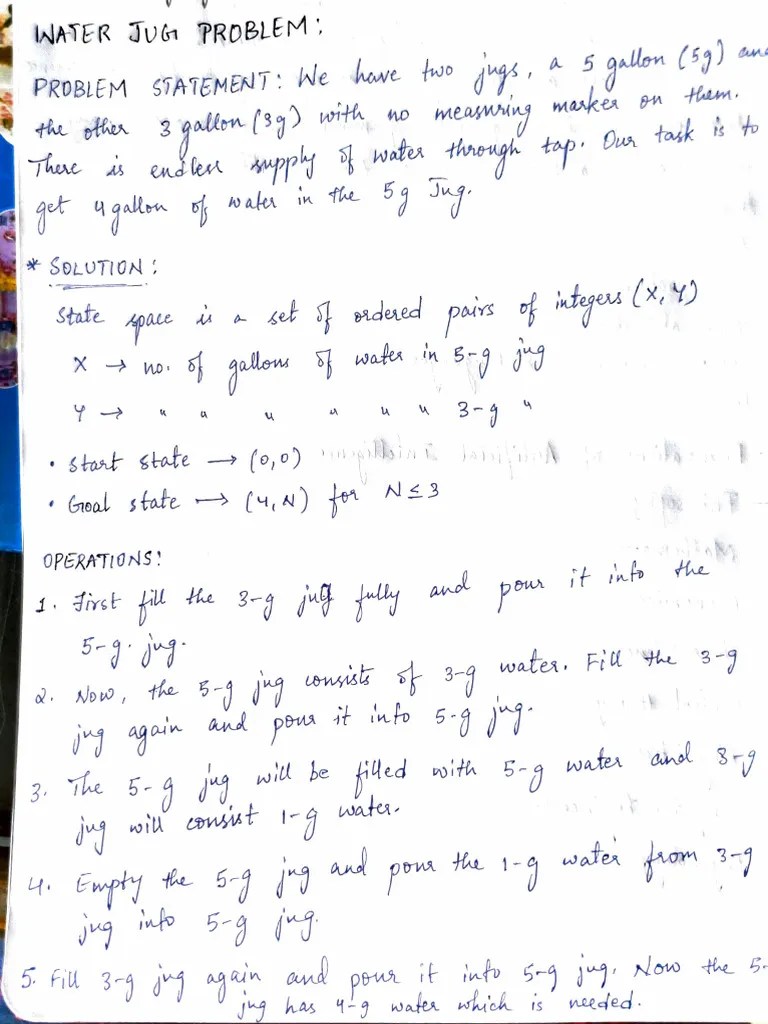 WATER JUG PROBLEM:
PROBLEM STATEMENT: We have two jugs, a 5 gallon (5g) and
the other 3 gallon (3g) with no measuring marker on them.
There is endless supply of water through tap. Our task is to
get 4 gallon of water in the 5g Jug.
* SOLUTION:
State space is a set of ordered pairs of integers (X, Y)
X → no. of gallons of water in 5-g jug
Y → " " " " " " 3-g "
• Start state → (0,0)
• Goal state → (4,N) for N ≤ 3
OPERATIONS:
1. First fill the 3-g jug fully and pour it into the
5-g. jug.
2. Now, the 5-g jug consists of 3-g water. Fill the 3-g
jug again and pour it into 5-g jug.
3. The 5-g jug will be filled with 5-g water and 3-g
jug will consist 1-g water.
4. Empty the 5-g jug and pour the 1-g water from 3-g
jug into 5-g jug.
5. Fill 3-g jug again and pour it into 5-g jug. Now the 5-
jug has 4-g water which is needed.